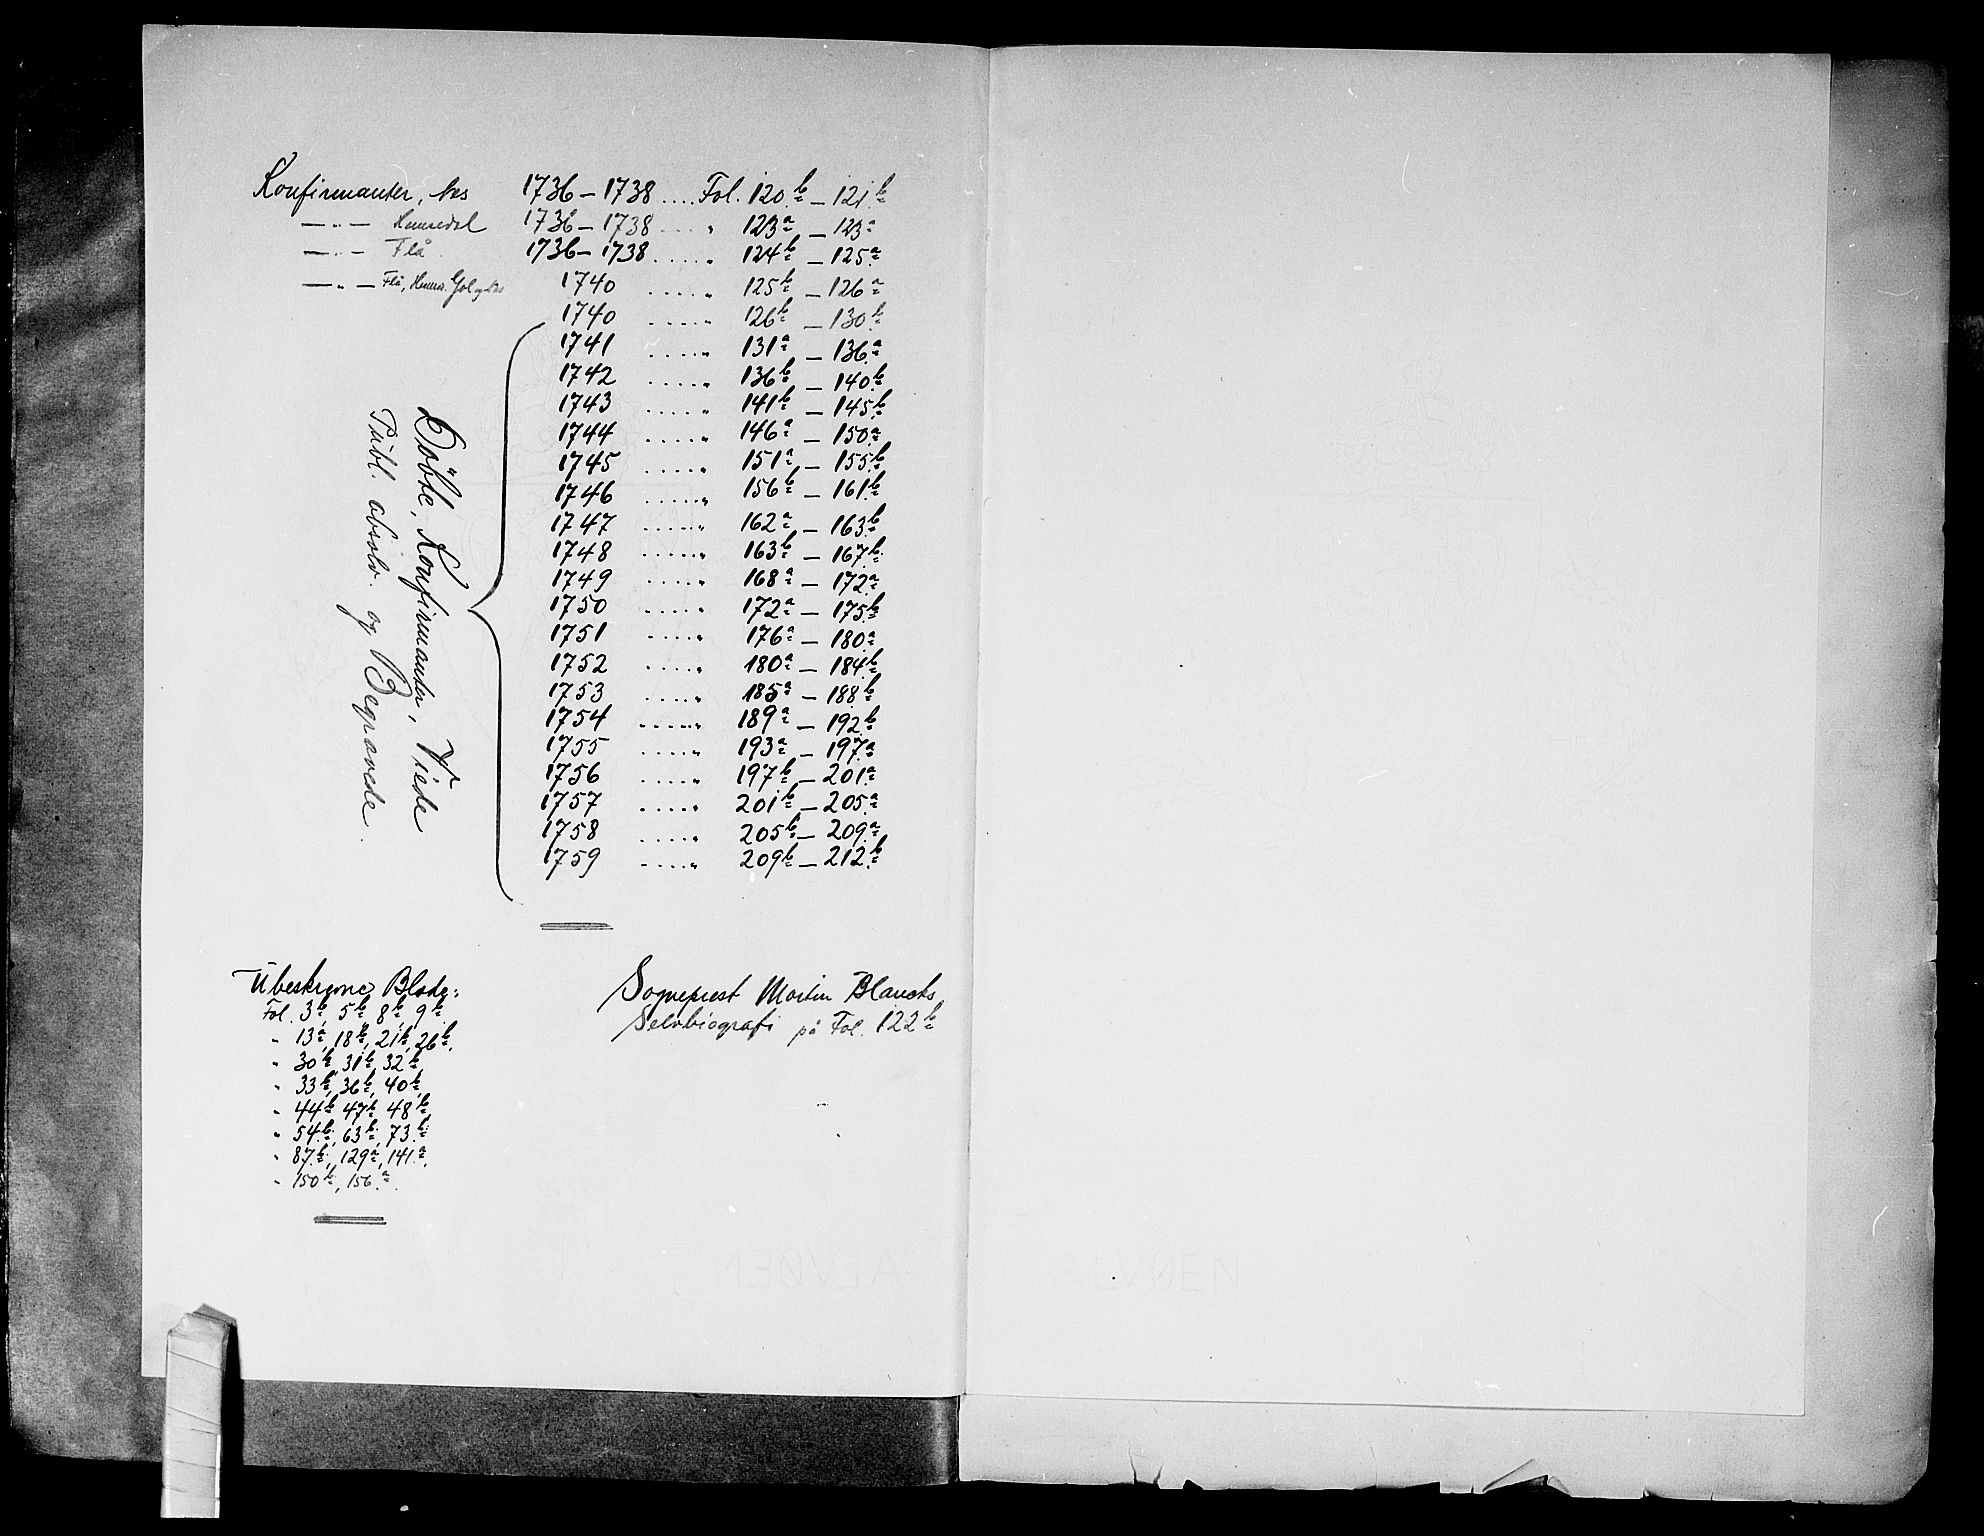 Konfirmanter, Nes 1736-1738 .... Fol. 120b - 121b
—„— Hemsedal 1736-1738 .... „ 123a - 123a
—„— Flå 1736-1738 ..... „ 124b - 125a
—„— Flå, Hems. Gol og Nes 1740 ..... „ 125b - 126a
1740 ..... „ 126b - 130b
1741 ..... „ 131a - 136a
1742 ..... „ 136b - 140b
1743 ..... „ 141b - 145b
1744 ..... „ 146a - 150a
1745 ..... „ 151a - 155b
1746 ..... „ 156b - 161b
1747 ..... „ 162a - 163b
1748 ..... „ 163b - 167b
1749 ..... „ 168a - 172a
1750 ..... „ 172a - 175b
1751 ..... „ 176a - 180a
1752 ..... „ 180a - 184b
1753 ..... „ 185a - 188b
1754 ..... „ 189a - 192b
1755 ..... „ 193a - 197a
1756 ..... „ 197b - 201a
1757 ..... „ 201b - 205a
1758 ..... „ 205b - 209a
1759 ..... „ 209b - 212b
Döbte, Konfirmanter, Viede
Publ. absolv. og Begravede.
Ubeskrevne Blade:
Fol. 3b, 5b, 8b, 9b
„ 13a, 18b, 21b, 26b,
„ 30b, 31b, 32b,
„ 33b, 36b, 40b,
„ 44b, 47b, 48b,
„ 54b, 63b, 73b,
„ 87b, 129a, 141a,
„ 150b, 156a.
Sogneprest Martin Blancks
Selvbiografi på Fol. 122b
ALVØEN
ALVØEN